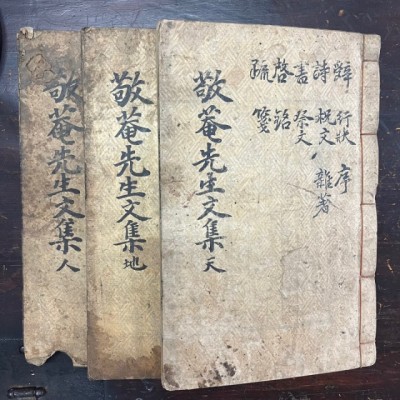 辭 行狀 序
詩 祝文 雜著
書 祭文
啓 銘
疏 箋
敬菴先生文集 天
敬菴先生文集 地
敬菴先生文集 人